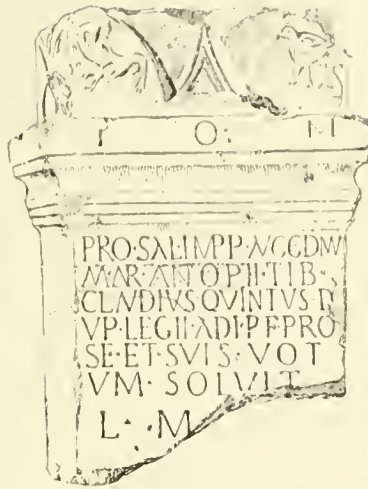 I O M
PRO·SAL·IMPP·N·C·C·D·M
MAR·ANTO·PII·TIB·
CLAVDIVS QVINTVS D
VP·LEG·II·ADI·P·F·PRO
SE·ET·SVIS·VOT
VM·SOLVIT
L·M